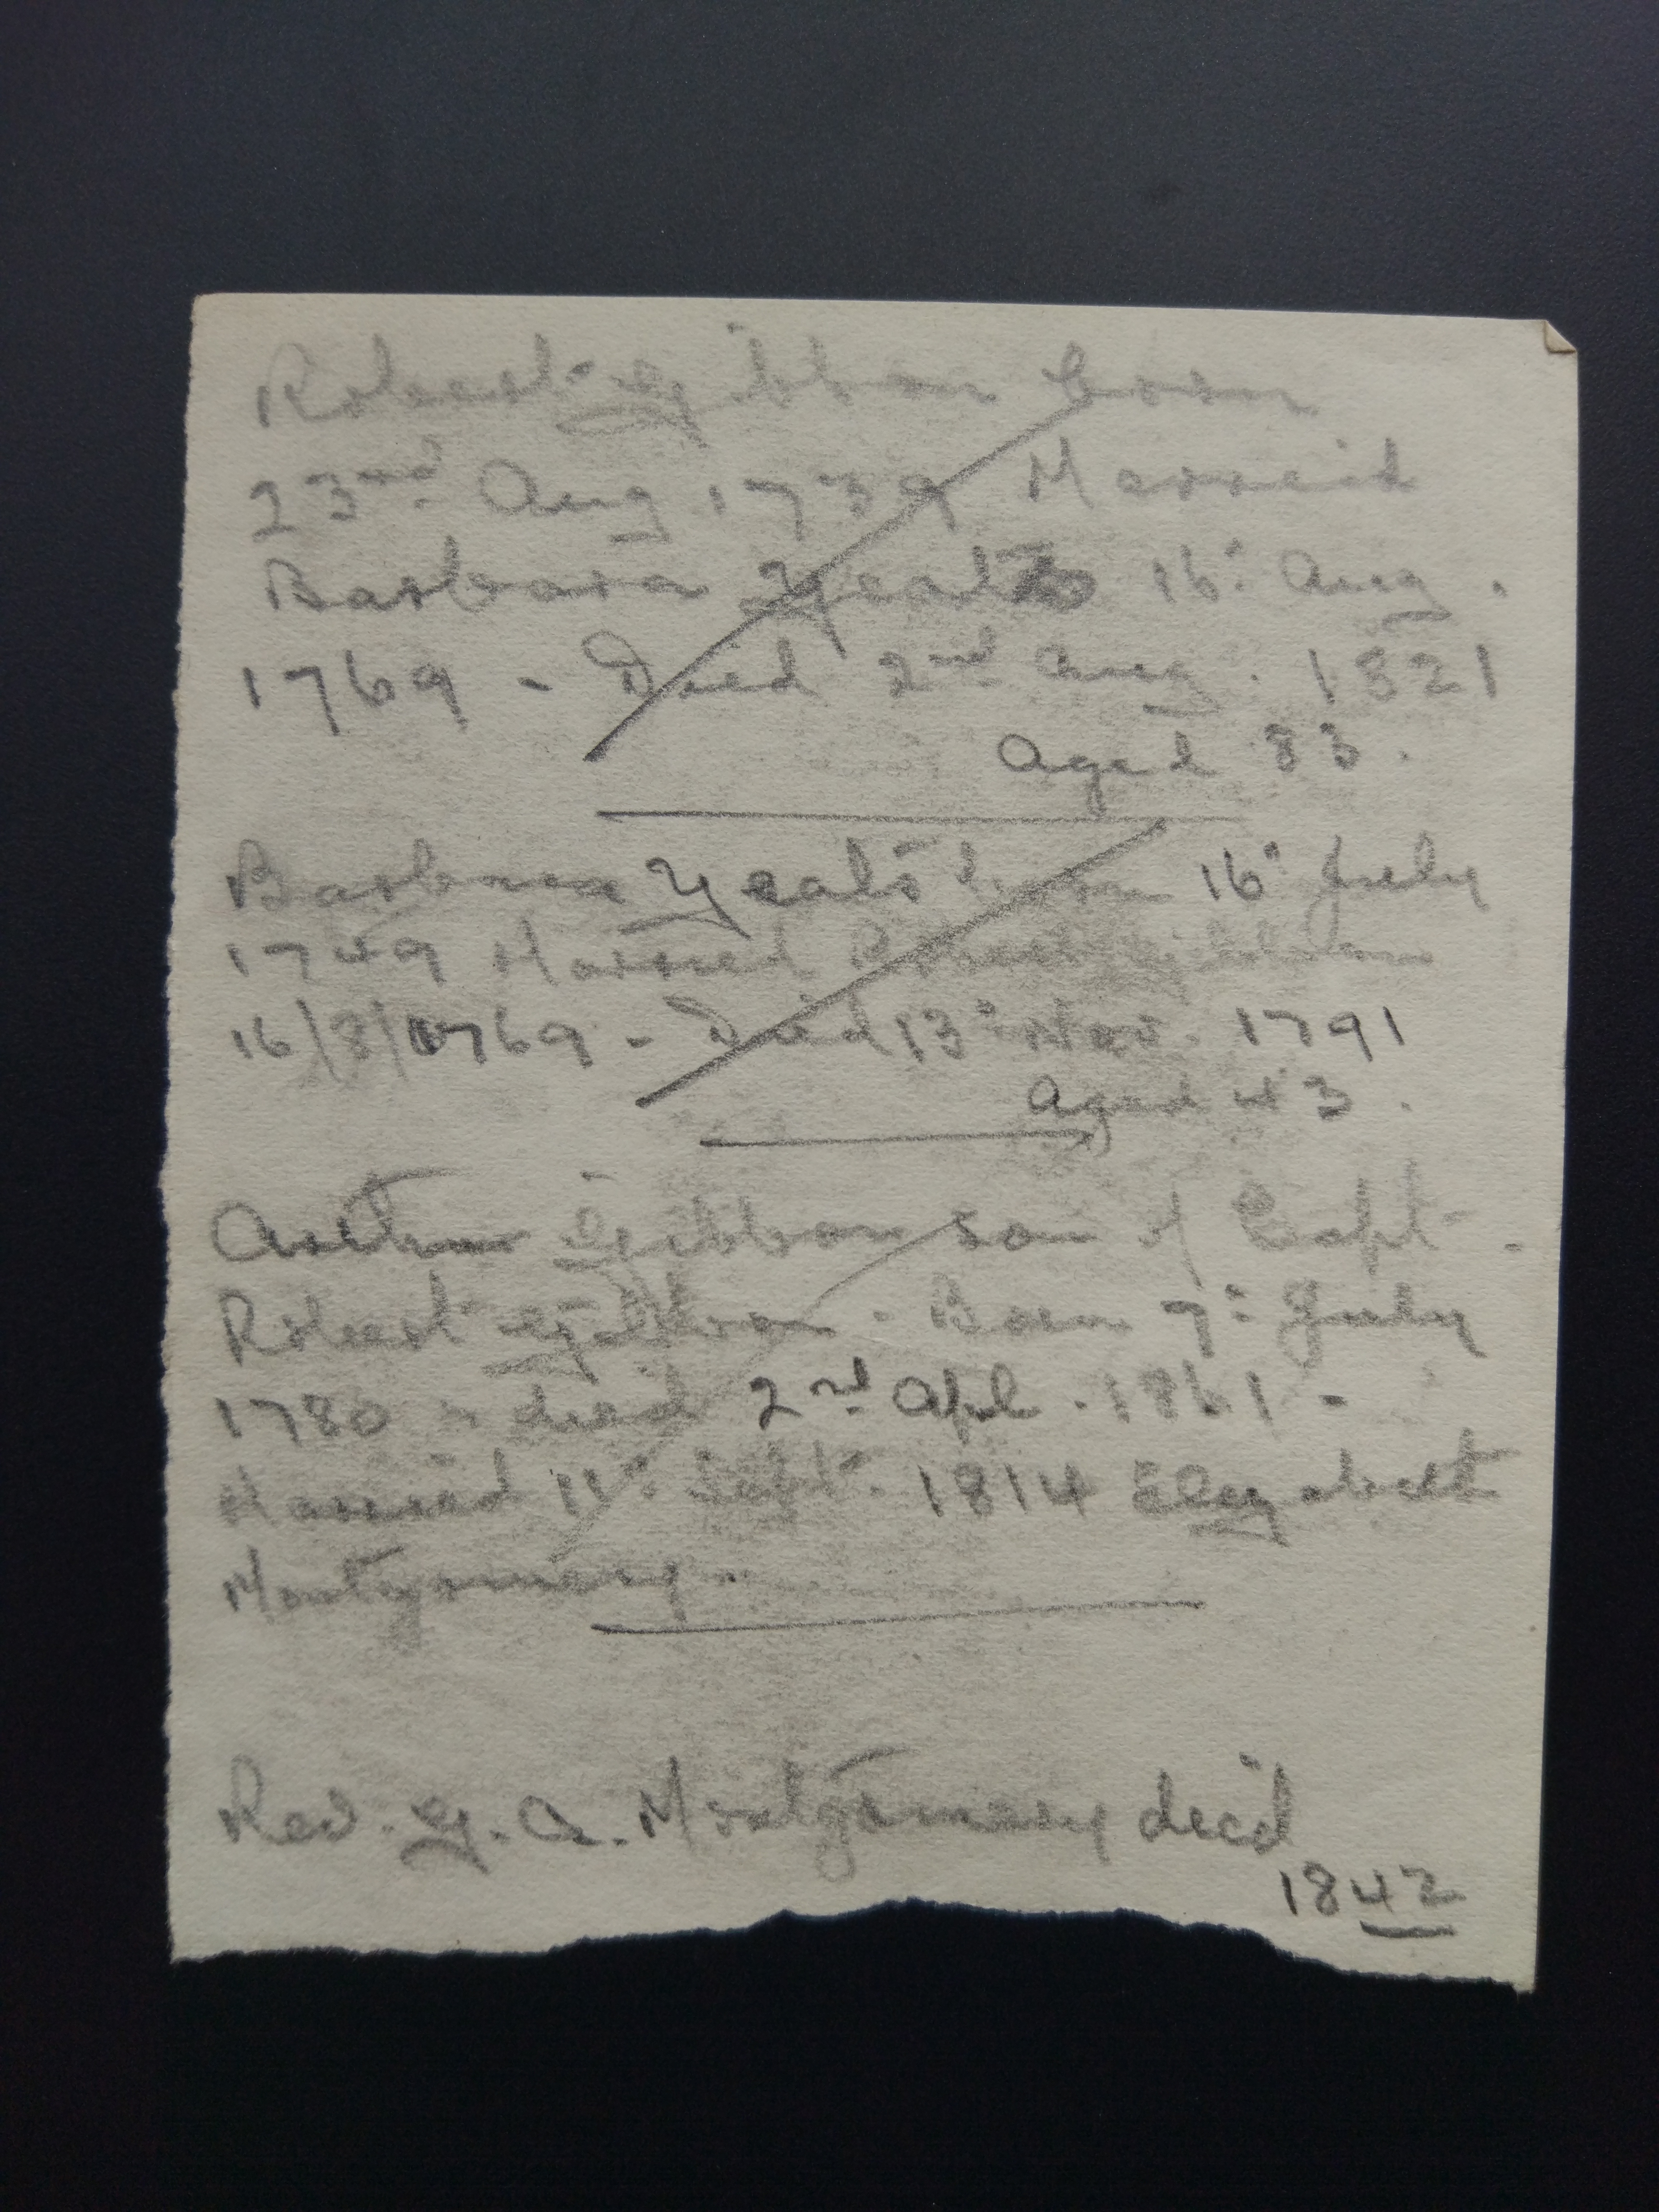 Robert Gibbon born
23rd Aug 1739 Married
Barbara Yeats 16: Aug.
1769 - Died 2nd Aug. 1821
Aged 83.
Barbara Yeats born 16: July
1749 Married Robert Gibbon
16/8/1769 - Died 13: Nov. 1791
Aged 43.
Arthur Gibbon son of Capt.
Robert Gibbon. Born 7: July
1780 - died 2nd Apl. 1861 -
Married 11: Sept. 1814 Elizabeth
Montgomery.
Rev. G. A. Montgomery died
1842